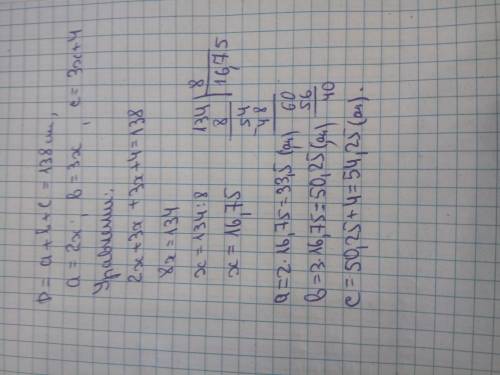 P = a + в + c = 138 см,
a = 2x; в = 3x, c = 3x + 4
Уравнение:
2x + 3x + 3x + 4 = 138
8x = 134
x = 134 : 8
x = 16,75
134 8
8 16,75
54
48
60
56
40
a = 2 · 16,75 = 33,5 (см)
в = 3 · 16,75 = 50,25 (см)
c = 50,25 + 4 = 54,25 (см).